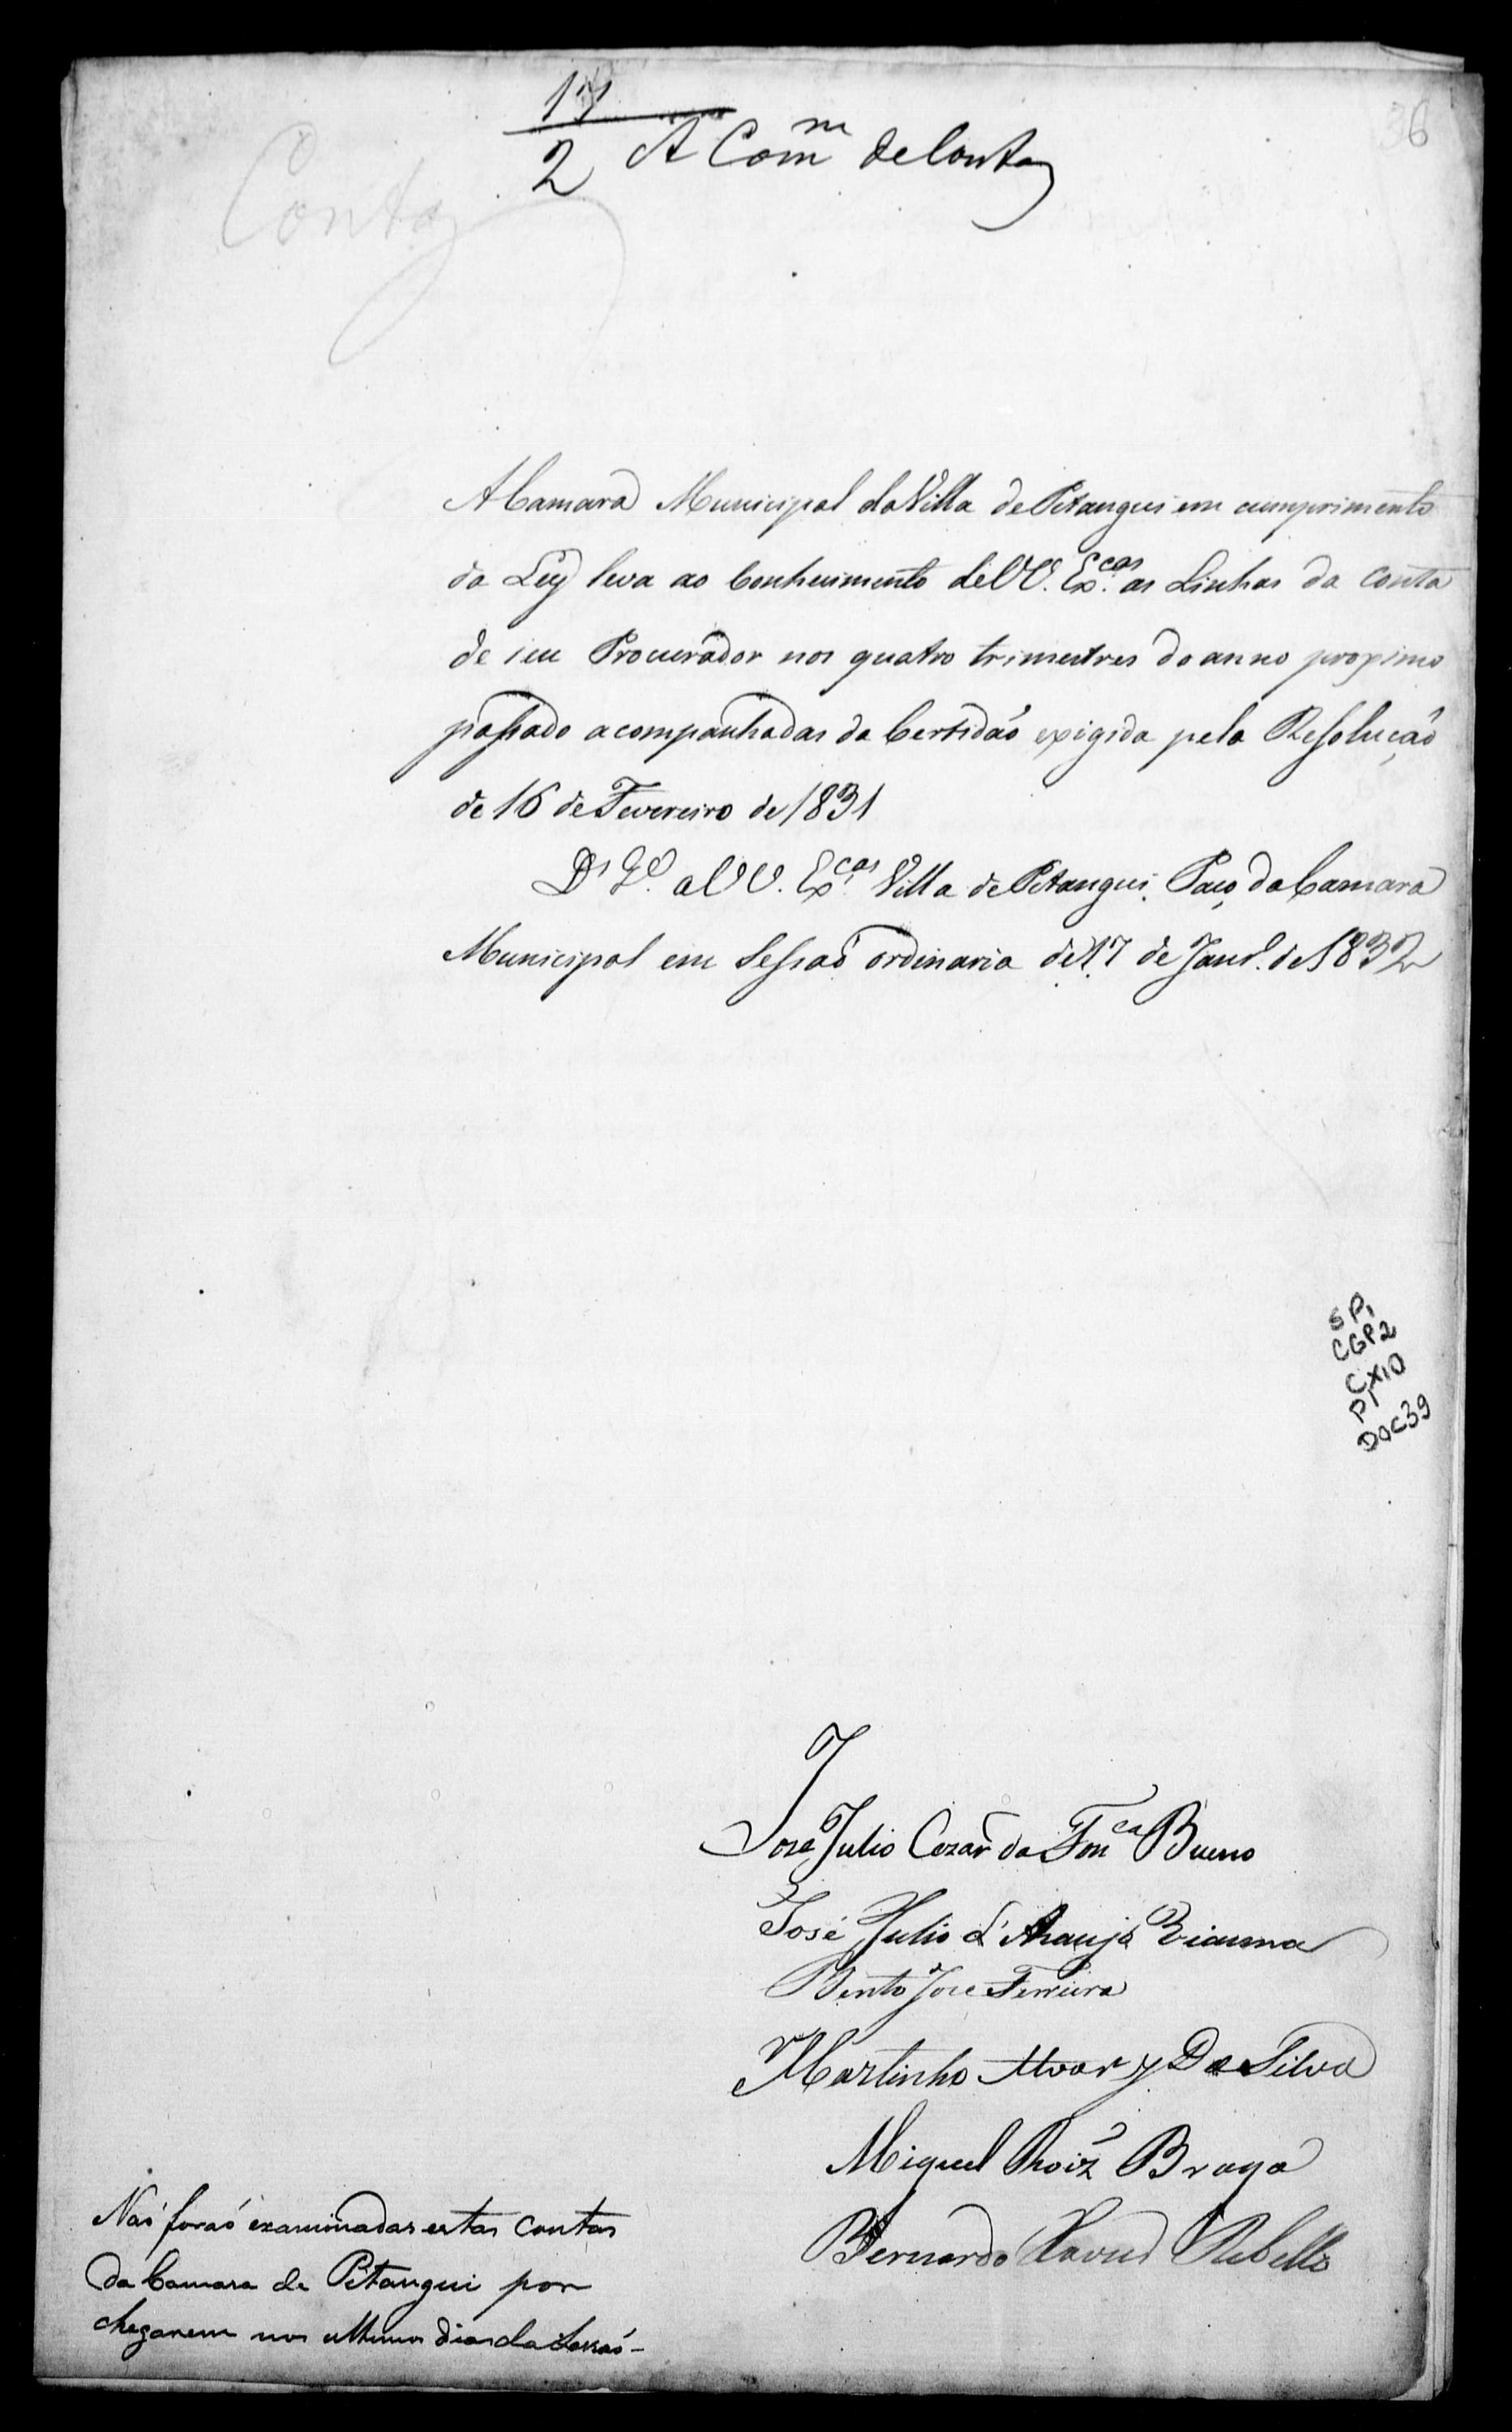 36
17
2 A Com^m de Contas
Contas
A Camara Municipal da Villa de Pitangui em cumprimento
da Ley leva ao Conhecimento de VV. Ex.^cas as Linhas da Conta
de seu Procurador nos quatro trimestres do anno proximo
passado acompanhadas da Certidaõ exigida pela Resoluçaõ
de 16 de Fevereiro de 1831
D^s G^e. a VV. Ex^cas. Villa de Pitangui, Paço da Camara
Municipal em Sessaõ ordinaria de 17 de Janr.^o de 1832
SP1
CGP2
CX10
P1
DOC39
José Julio Cezar da Fon^ca Bueno
José Julio d'Araujo Vianna
Bento Jose Ferreira
Martinho Alvarz Da Silva
Miguel Roiz Braga
Bernardo Xavier Rebello
Naõ foraõ examinadas estas contas
da Camara de Pitangui por
chegarem nos ultimos dias da Sessaõ-